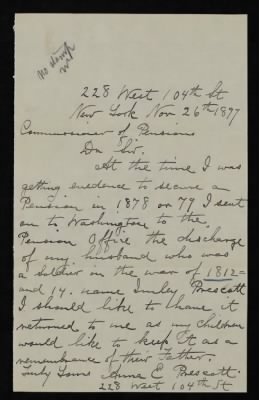 no stamp
228 West 104th St
New York Nov. 26th 1897
Commissioner of Pensions
Dr Sir,
At the time I was
getting evedence to secure an
Pension in 1878 or 79 I sent
on to Washington to the
Pension Office the discharge
of my husband who was
a Soldier in the war of 1812=
and 14. name Imley Prescott
I should like to have it
returned to me as my children
would like to keep it as a
remembrance of their Father.
Truly Yours Anna E Prescott
228 West 104th St